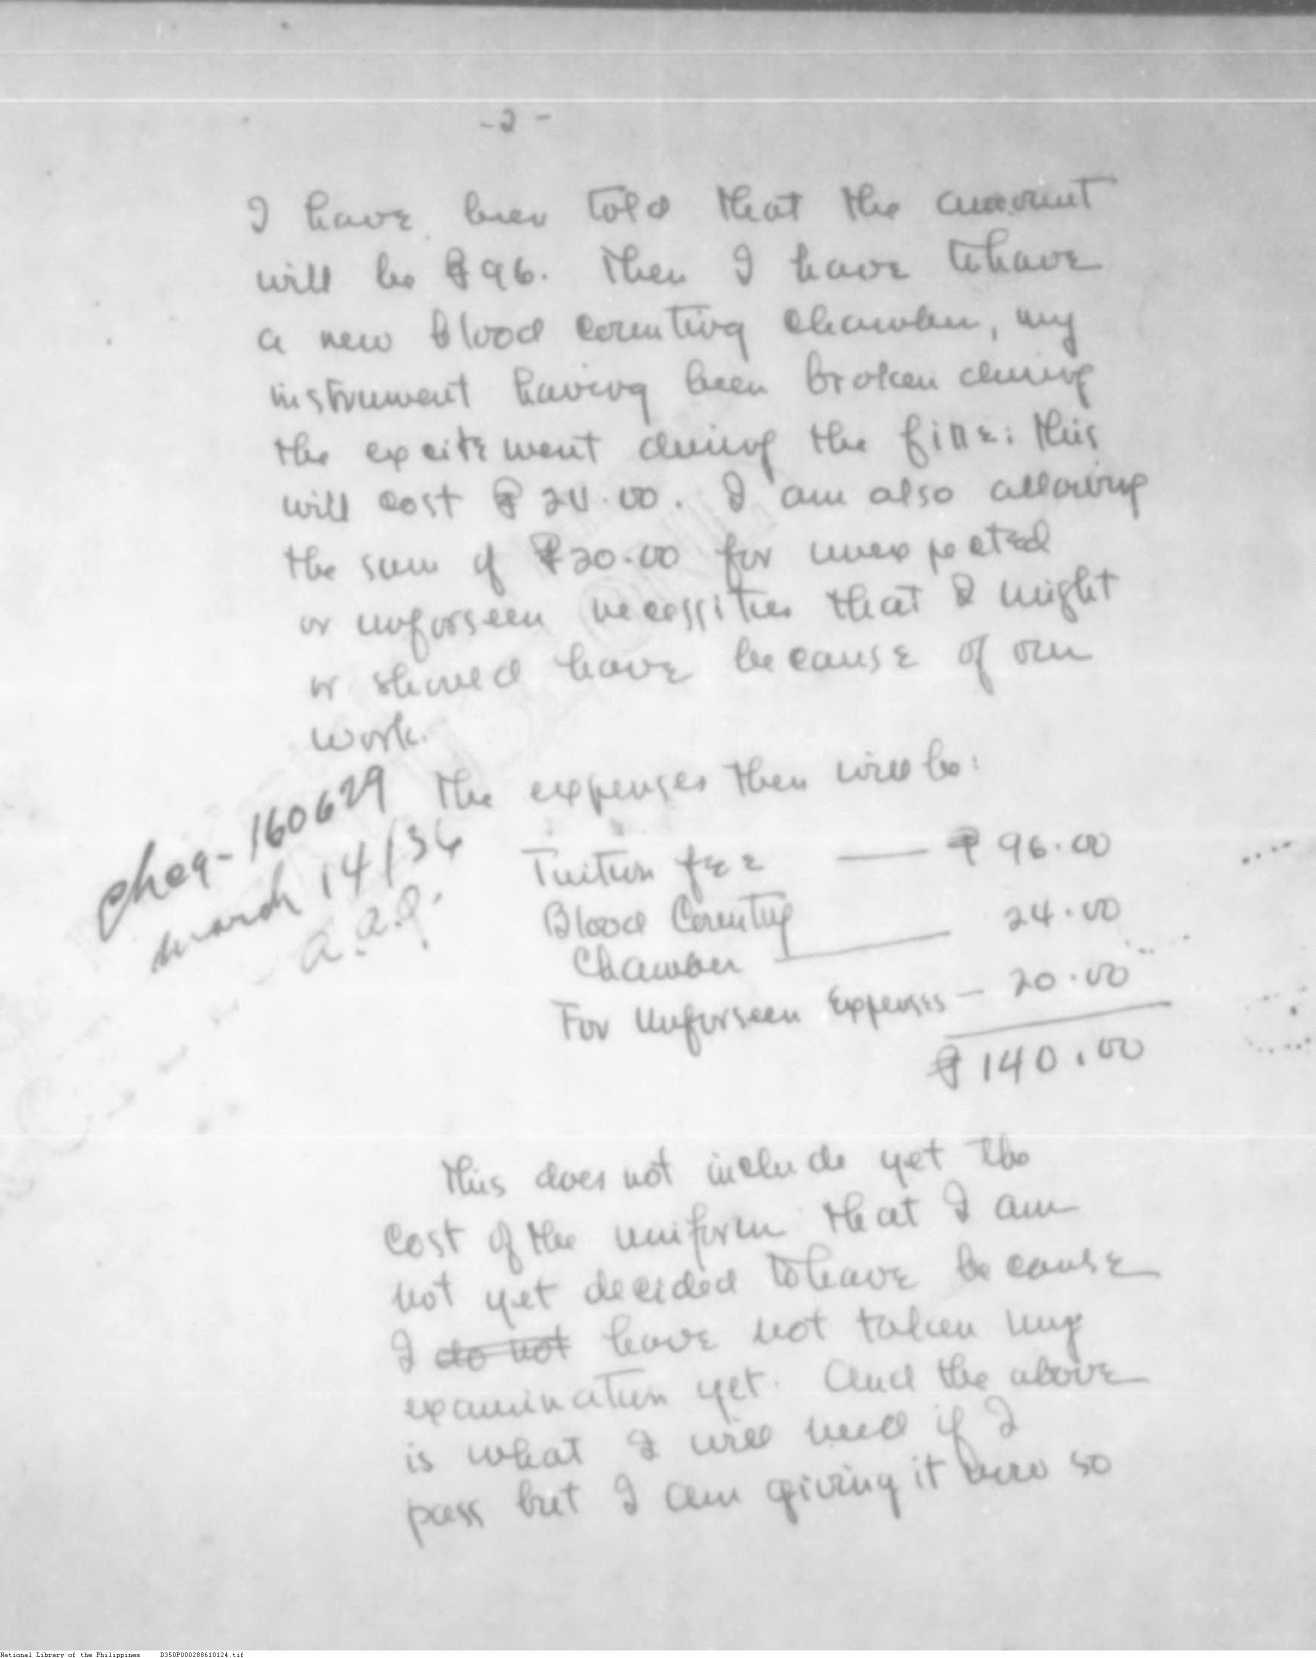 - 2 -
I have been told that the amount
will be ₱96. Then I have to have
a new blood counting chamber, my
instrument having been broken during
the excitement during the fire: this
will cost ₱24.00. I am also allowing
the sum of ₱20.00 for unexpected
or unforseen necessities that I might
or should have because of our
work.
The expenses then will be:
Cheq-160629
March 14/36
a.a.q.
Tuition fee — ₱ 96.00
Blood Counting
Chamber — 24.00
For Unforseen Expenses — 20.00
₱ 140.00
This does not include yet the
cost of the uniform that I am
not yet decided to have because
I do not have not taken my
examination yet. And the above
is what I will need if I
pass but I am giving it now so
National Library of the Philippines D350P000288610124.tif